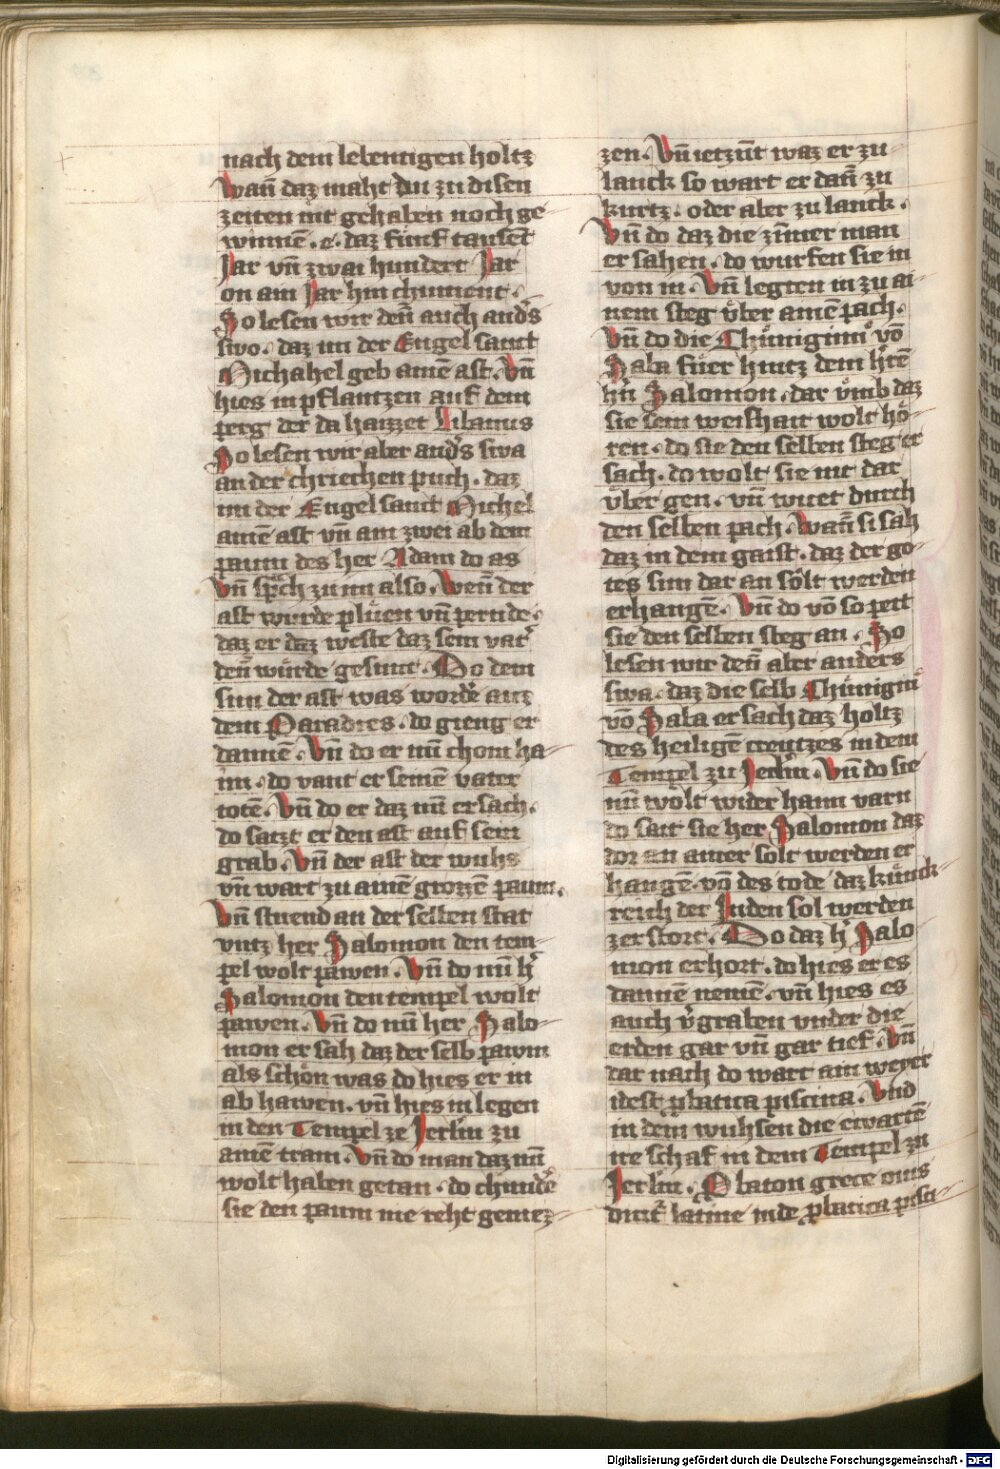 nach dem lebentigen holtz
wañ daz maht du zu disen
zeiten nit gehaben noch ge
winnē . e . daz fünf tausēt
Jar vñ zwai hundert Jar
on ain Jar hin chument .
So lesen wir deñ auch and's
swo . daz im der Engel sant
Michahel geb ainē ast . Vñ
hies in pflantzen auf dem
perg der da haizzet Libanus
So lesen wir aber and's swa
an der chriechen puch . daz
im der Engel sant Michel
ainē ast vñ ain zwei ab dem
paum des her Adam do as
vñ sprch zu im also . Wenñ der
ast wurde plüen vñ pernde .
daz er daz weste daz sein vat'
denñ würde gesunt . Do dem
sun der ast was wordē auz
dem Paradies . do gieng er
dannē . Vñ do er nū chom ha-
im . do vant er seinē vater
totē . Vñ do er daz nū ersach .
do satzt er den ast auf sein
grab . Vñ der ast der wuhs
vñ wart zu ainē grozzē paum .
Vñ stuend an der selben stat
vntz her Salomon den tem-
pel wolt pawen . Vñ do nū h'
Salomon den tempel wolt
pawen . Vñ do nū her Salo-
mon ersah daz der selb pawm
als schön was do hies er in
ab hawen . vñ hies in legen
in den Tempel ze Jerl'm zu
ainē tram . Vñ do man daz nū
wolt haben getan . do chundē
sie den paum nie reht gemez-
zen . Vñ ietzūt waz er zu
lanck so wart er dañ zu
kurtz . oder aber zu lanck .
Vñ do daz die zīmer man
ersahen . do wurfen sie in
von in . Vñ legten in zu ai-
nem steg über ainē pach .
Vñ do die Chüniginn vō
Saba füer hintz dem h'rē
h'n Salomon . dar vmb daz
sie sein weishait wolt hö-
ren . do sie den selben steg er
sach . do wolt sie nit dar
über gen . vñ wuet durch
den selben pach . wañ si sah
daz in dem gaist . daz der go-
tes sun dar an sölt werden
erhangē . Vñ do vō so pett
sie den selben steg an . So
lesen wir deñ aber anders
swa . daz die selb Chünigin
vō Saba ersach daz holtz
des heiligē creutzes in dem
Tempel zu Jerl'm . Vñ do sie
nū wolt wider haim varn
do sait sie her Salomon daz
dor an ainer solt werden er
hangē . vō des tode daz künck-
reich der Juden sol werden
zerstort . Do daz h' Salo
mon erhort . do hies er es
dannē nemē . vñ hies es
auch v'graben vnder die
erden gar vñ gar tief . Vñ
dar nach do wart ain weyer
idest platica piscina . Vnd
in dem wuhsen die ewartē
ire schaf in dem Tempel zu
Jerl'm . Platon grece ouis
dicit' latine inde platica pisci-
Digitalisierung gefördert durch die Deutsche Forschungsgemeinschaft - DFG